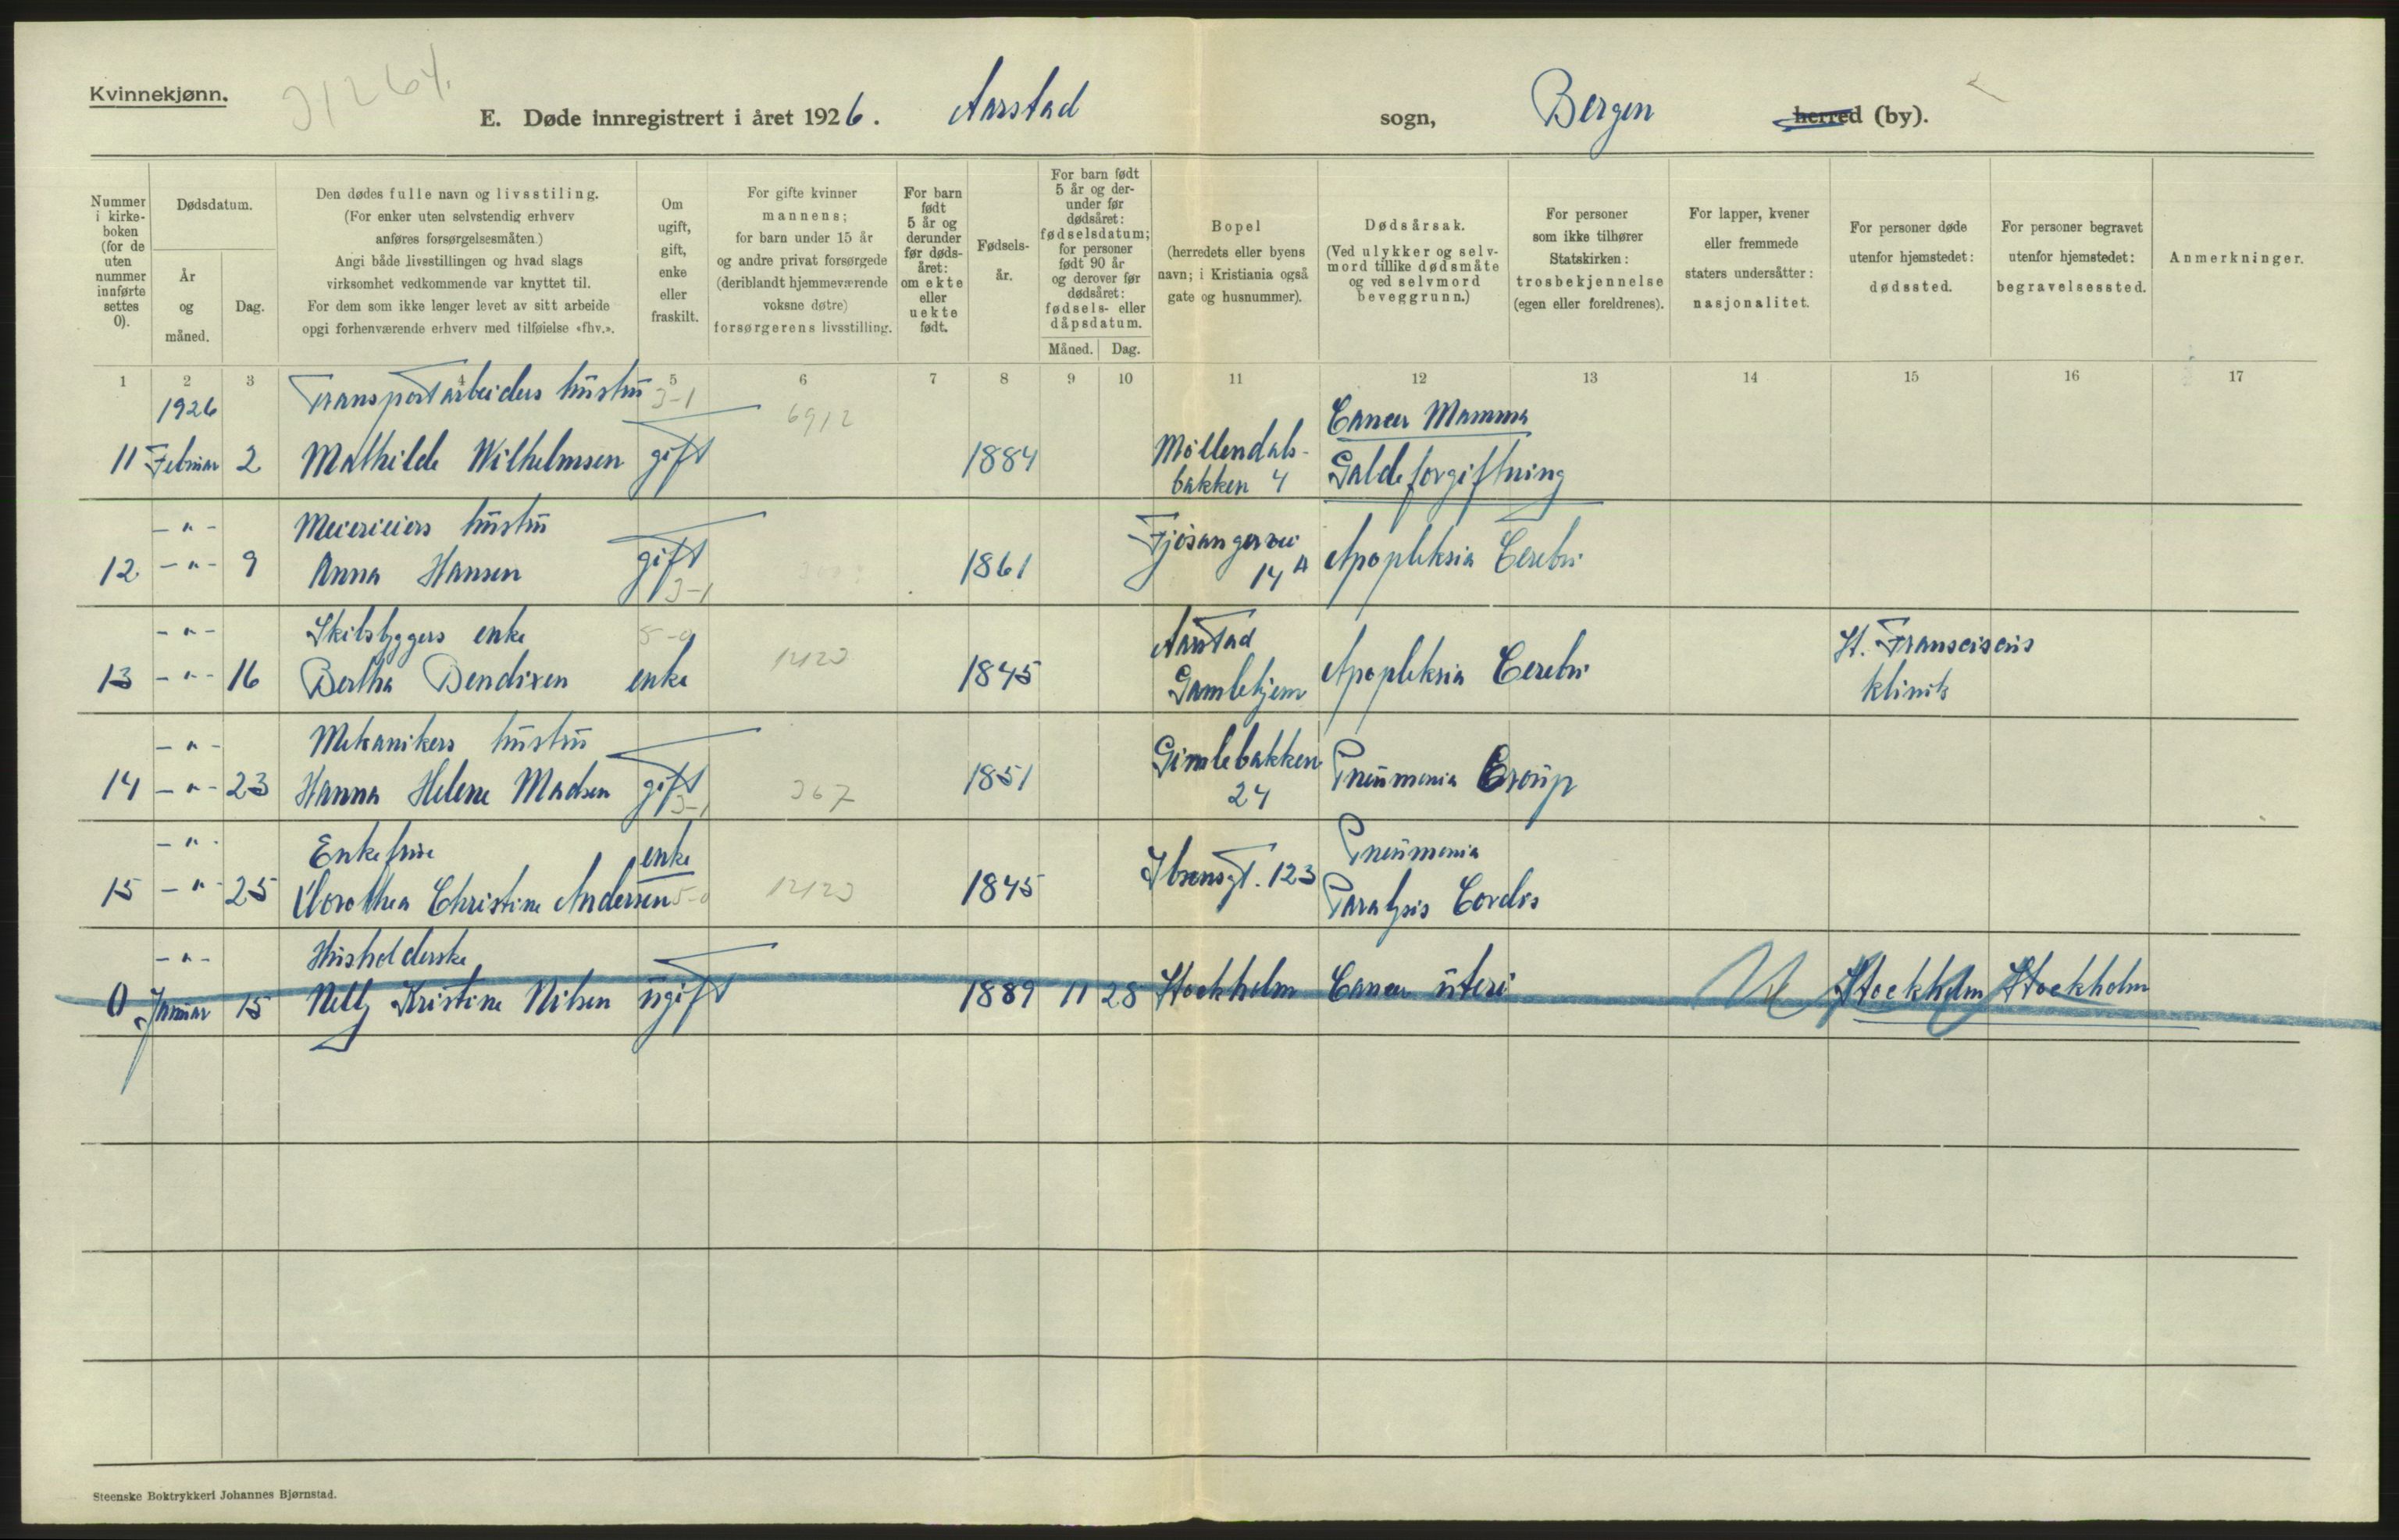 Kvinnekjønn.
31264.
E. Døde innregistrert i året 1926. Aarstad sogn, Bergen herred (by).
Nummer i kirke- boken (for de uten nummer innførte settes 0).
Dødsdatum.
År og måned.
Dag.
Den dødes fulle navn og livsstiling.
(For enker uten selvstendig erhverv
anføres forsørgelsesmåten.)
Angi både livsstillingen og hvad slags
virksomhet vedkommende var knyttet til.
For dem som ikke lenger levet av sitt arbeide
opgi forhenværende erhverv med tilføielse «fhv.».
Om ugift, gift, enke eller fraskilt.
For gifte kvinner
mannens;
for barn under 15 år
og andre privat forsørgede
(deriblandt hjemmeværende
voksne døtre)
forsørgerens livsstilling.
For barn født 5 år og derunder før døds- året: om ekte eller uekte født.
Fødsels- år.
For barn født
5 år og der-
under før
dødsåret:
fødselsdatum;
for personer
født 90 år
og derover før
dødsåret:
fødsels- eller
dåpsdatum.
Måned. Dag.
Bopel
(herredets eller byens
navn; i Kristiania også
gate og husnummer).
Dødsårsak.
(Ved ulykker og selv-
mord tillike dødsmåte
og ved selvmord
beveggrunn.)
For personer
som ikke tilhører
Statskirken:
trosbekjennelse
(egen eller foreldrenes).
For lapper, kvener
eller fremmede
staters undersåtter:
nasjonalitet.
For personer døde
utenfor hjemstedet:
dødssted.
For personer begravet
utenfor hjemstedet:
begravelsessted.
Anmerkninger.
1 2 3 4 5 6 7 8 9 10 11 12 13 14 15 16 17
1926 Transportarbeiders hustru 3-1 6912 Cancer Mamma
11 Februar 2 Mathilde Wilhelmsen gift 1884 Möllendals-
bakken 4 Galdeforgiftning
-"- Meierieiers hustru Fjösangervei
12 -"- 9 Anna Hansen gift 1861 14 A Apopleksia Cerebri
3-1
-"- Skibsbyggers enke 5-0 12123 Aarstad St. Franciscus
13 -"- 16 Bertha Bendixen enke 1845 Gamlehjem Apopleksia Cerebri klinik
-"- Mekanikers hustru Gimlebakken
14 -"- 23 Hanna Helene Madsen gift 3-1 367 1851 24 Pneumonia Croup
-"- Enkefrue enke Pneumonia
15 -"- 25 Dorothea Christine Andersen 5-0 12123 1845 Ibsensgt. 123 Paralysis Cordis
-"- Husholderske
0 Januar 15 Nelly Kristine Nilsen ugift 1889 11 28 Stockholm Cancer uteri Stockholm Stockholm
Steenske Boktrykkeri Johannes Bjørnstad.